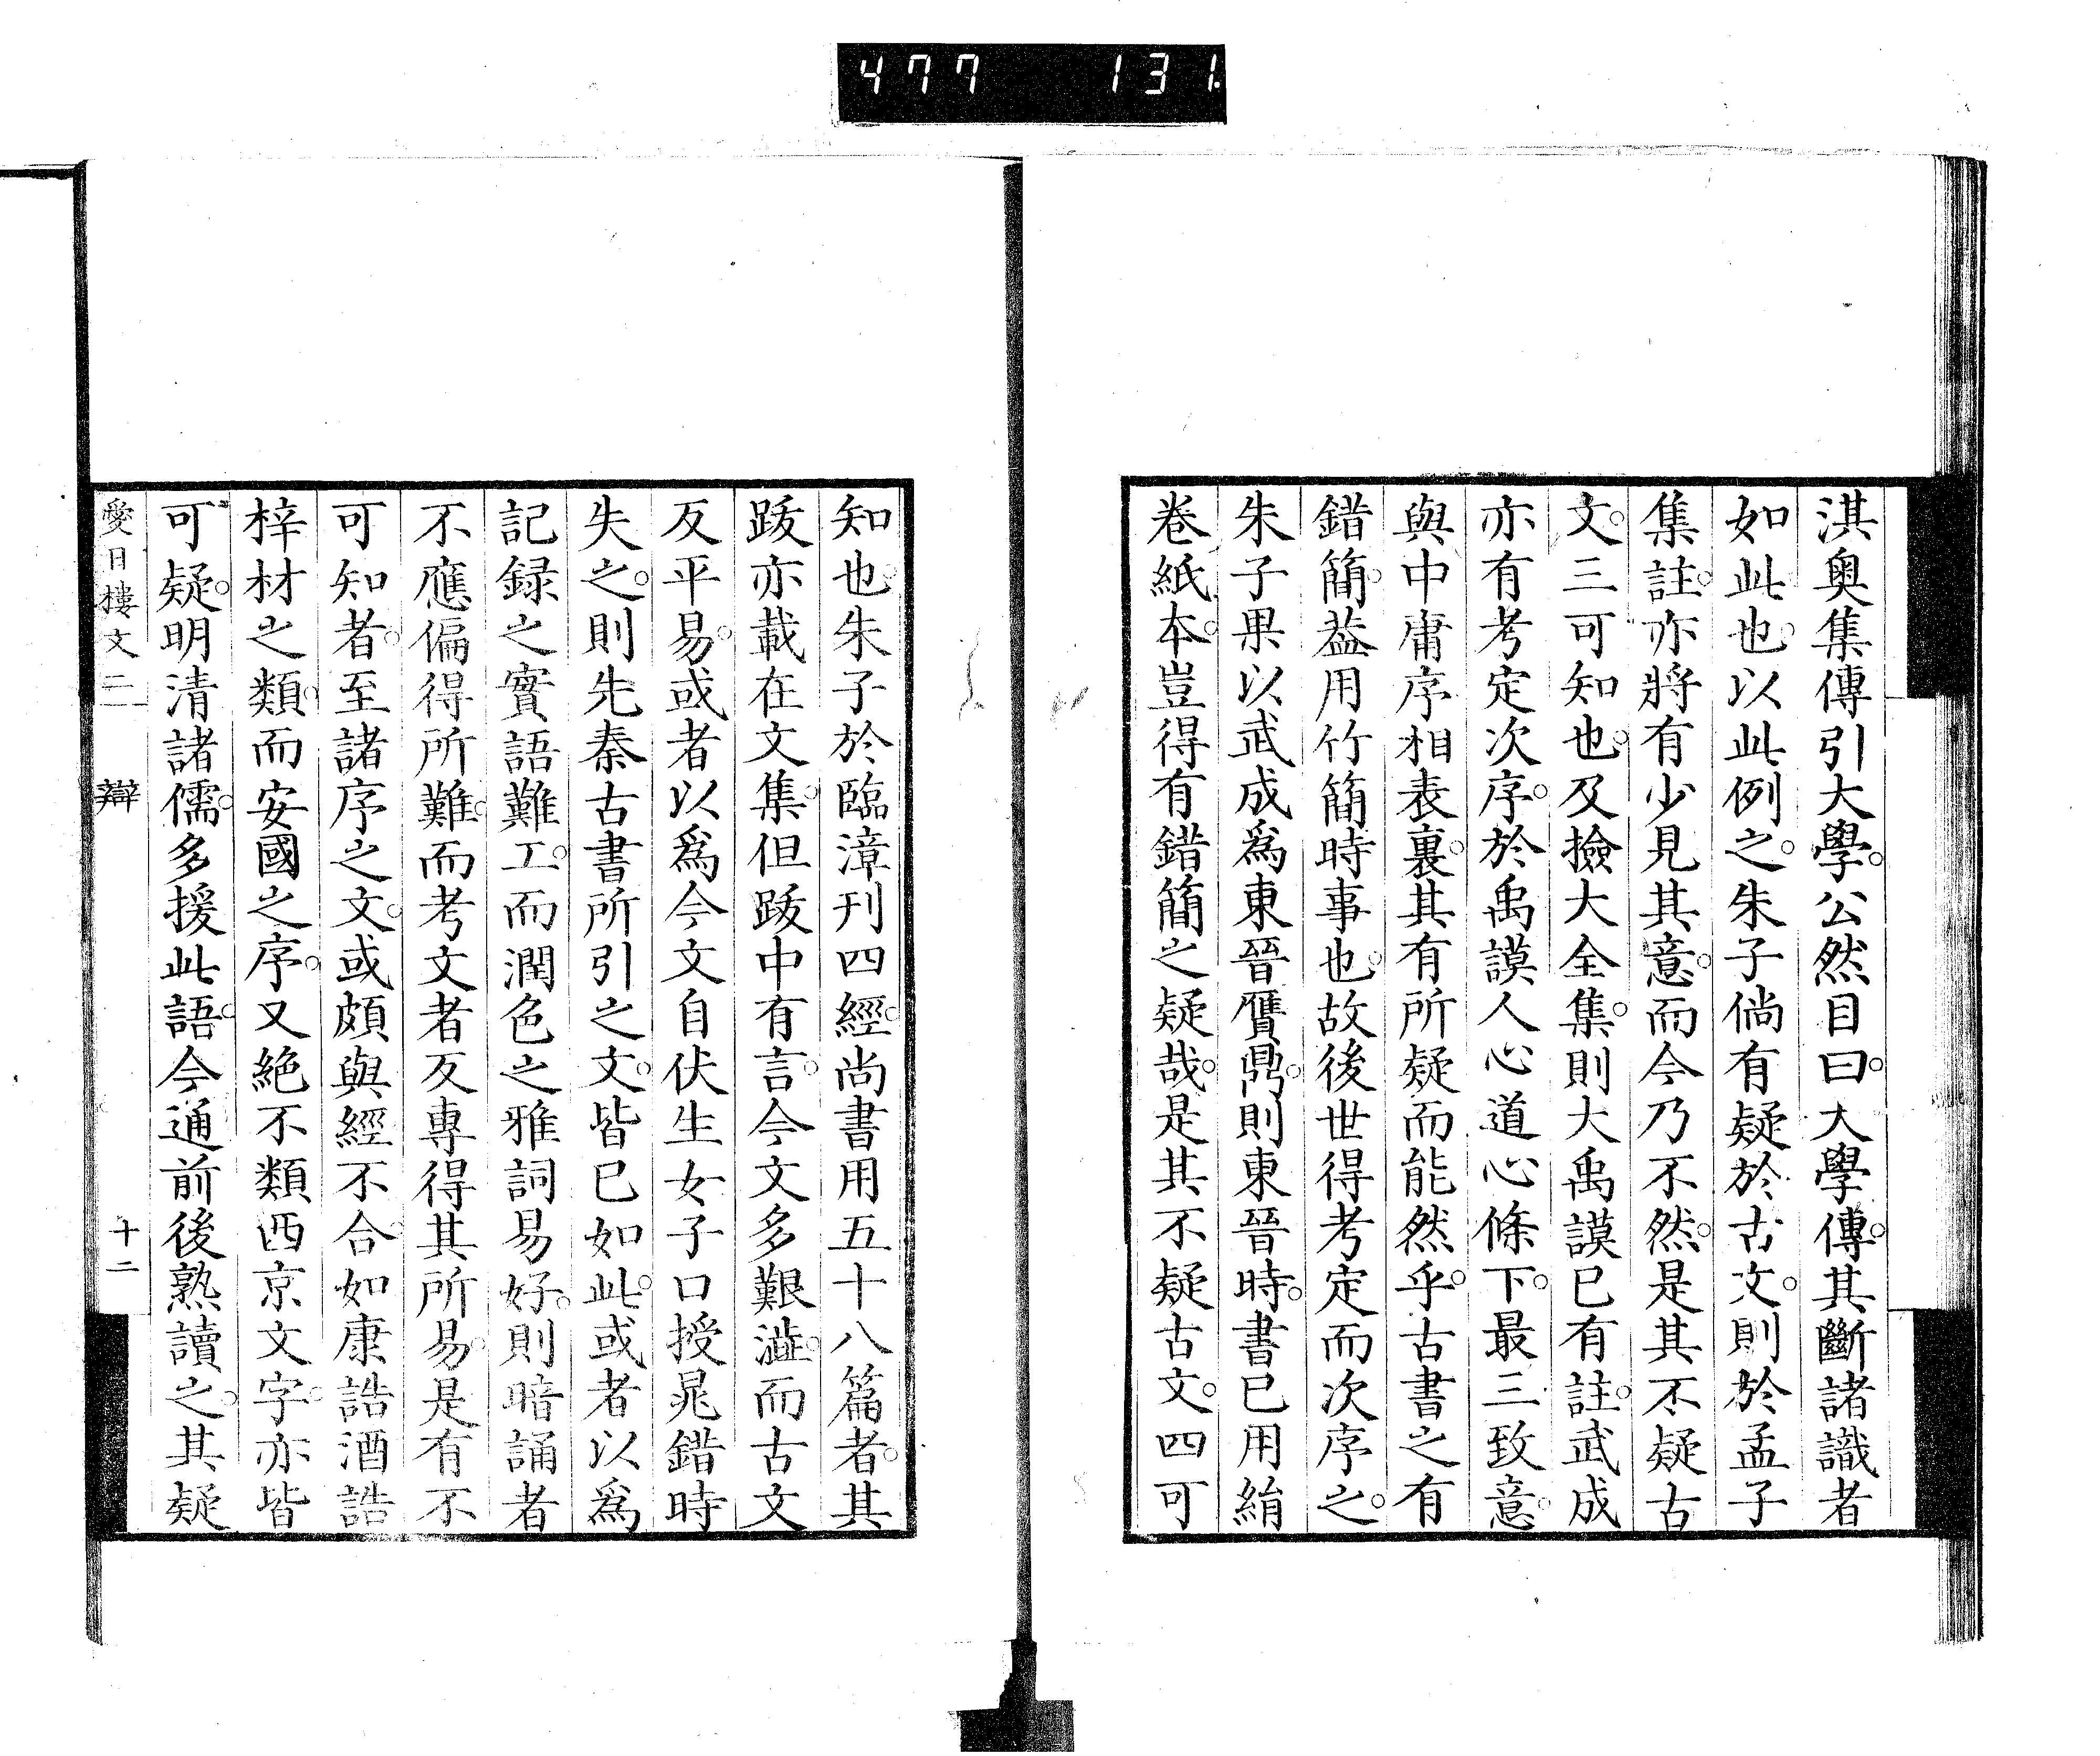 477 131.
淇奥集傳引大學。公然目曰。大學傳。其斷諸識者
如此也。以此例之。朱子倘有疑於古文。則於孟子
集註。亦將有少見其意。而今乃不然。是其不疑古
文。三可知也。及撿大全集。則大禹謨已有註。武成
亦有考定次序。於禹謨人心道心條下。最三致意。
與中庸序相表裏。其有所疑而能然乎。古書之有
錯簡。葢用竹簡時事也。故後世得考定而次序之。
朱子果以武成爲東晉贋鼎。則東晉時。書已用絹
卷紙本。豈得有錯簡之疑哉。是其不疑古文。四可
知也。朱子於臨漳刊四經。尚書用五十八篇者。其
跋亦載在文集。但跋中有言。今文多艱澁。而古文
反平易。或者以爲今文自伏生女子口授晁錯時
失之。則先秦古書所引之文。皆已如此。或者以爲
記録之實語難工。而潤色之雅詞易好。則暗誦者
不應偏得所難。而考文者反專得其所易。是有不
可知者。至諸序之文。或頗與經不合。如康誥酒誥
梓材之類。而安國之序。又絶不類西京文字。亦皆
可疑。明清諸儒。多援此語。今通前後熟讀之。其疑
愛日樓文二 辯 十二